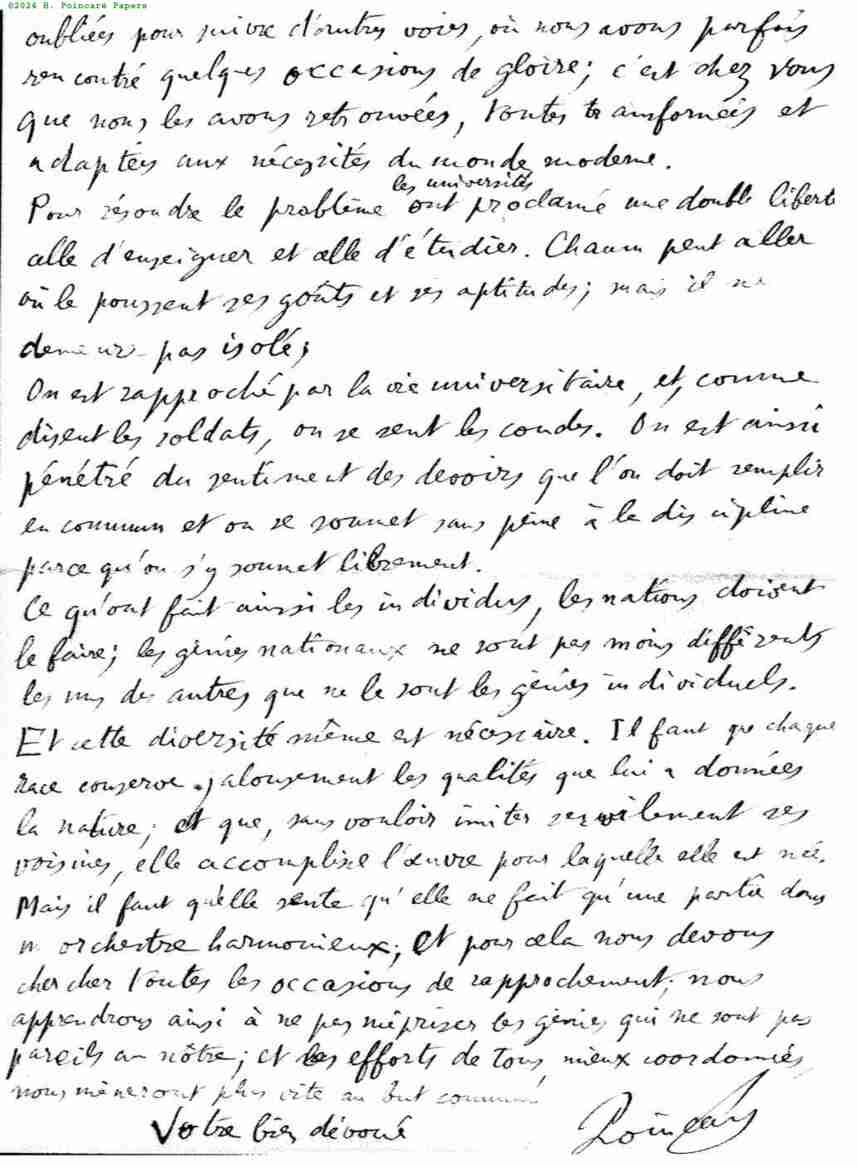 ©2024 H. Poincaré Papers
oubliées pour suivre d'autres voies, où nous avons parfois
rencontré quelques occasions de gloire; c'est chez vous
que nous les avons retrouvées, toutes transformées et
adaptées aux nécessités du monde moderne.
les universités
Pour résoudre le problème ont proclamé une double liberté
celle d'enseigner et celle d'étudier. Chacun peut aller
où le poussent ses goûts et ses aptitudes; mais il ne
demeure pas isolé;
On est rapproché par la vie universitaire, et, comme
disent les soldats, on se sent les coudes. On est ainsi
pénétré du sentiment des devoirs que l'on doit remplir
en commun et on se soumet sans peine à la discipline
parce qu'on s'y soumet librement.
Ce qu'ont fait ainsi les individus, les nations doivent
le faire; les génies nationaux ne sont pas moins différents
les uns des autres que ne le sont les génies individuels.
Et cette diversité même est nécessaire. Il faut que chaque
race conserve jalousement les qualités que lui a données
la nature; et que, sans vouloir imiter servilement ses
voisines, elle accomplisse l'œuvre pour laquelle elle est née.
Mais il faut qu'elle sente qu'elle ne fait qu'une partie dans
un orchestre harmonieux; et pour cela nous devons
chercher toutes les occasions de rapprochement; nous
apprendrons ainsi à ne pas mépriser les génies qui ne sont pas
pareils au nôtre; et les efforts de tous, mieux coordonnés
nous mèneront plus vite au but commun
Votre bien dévoué Poincaré